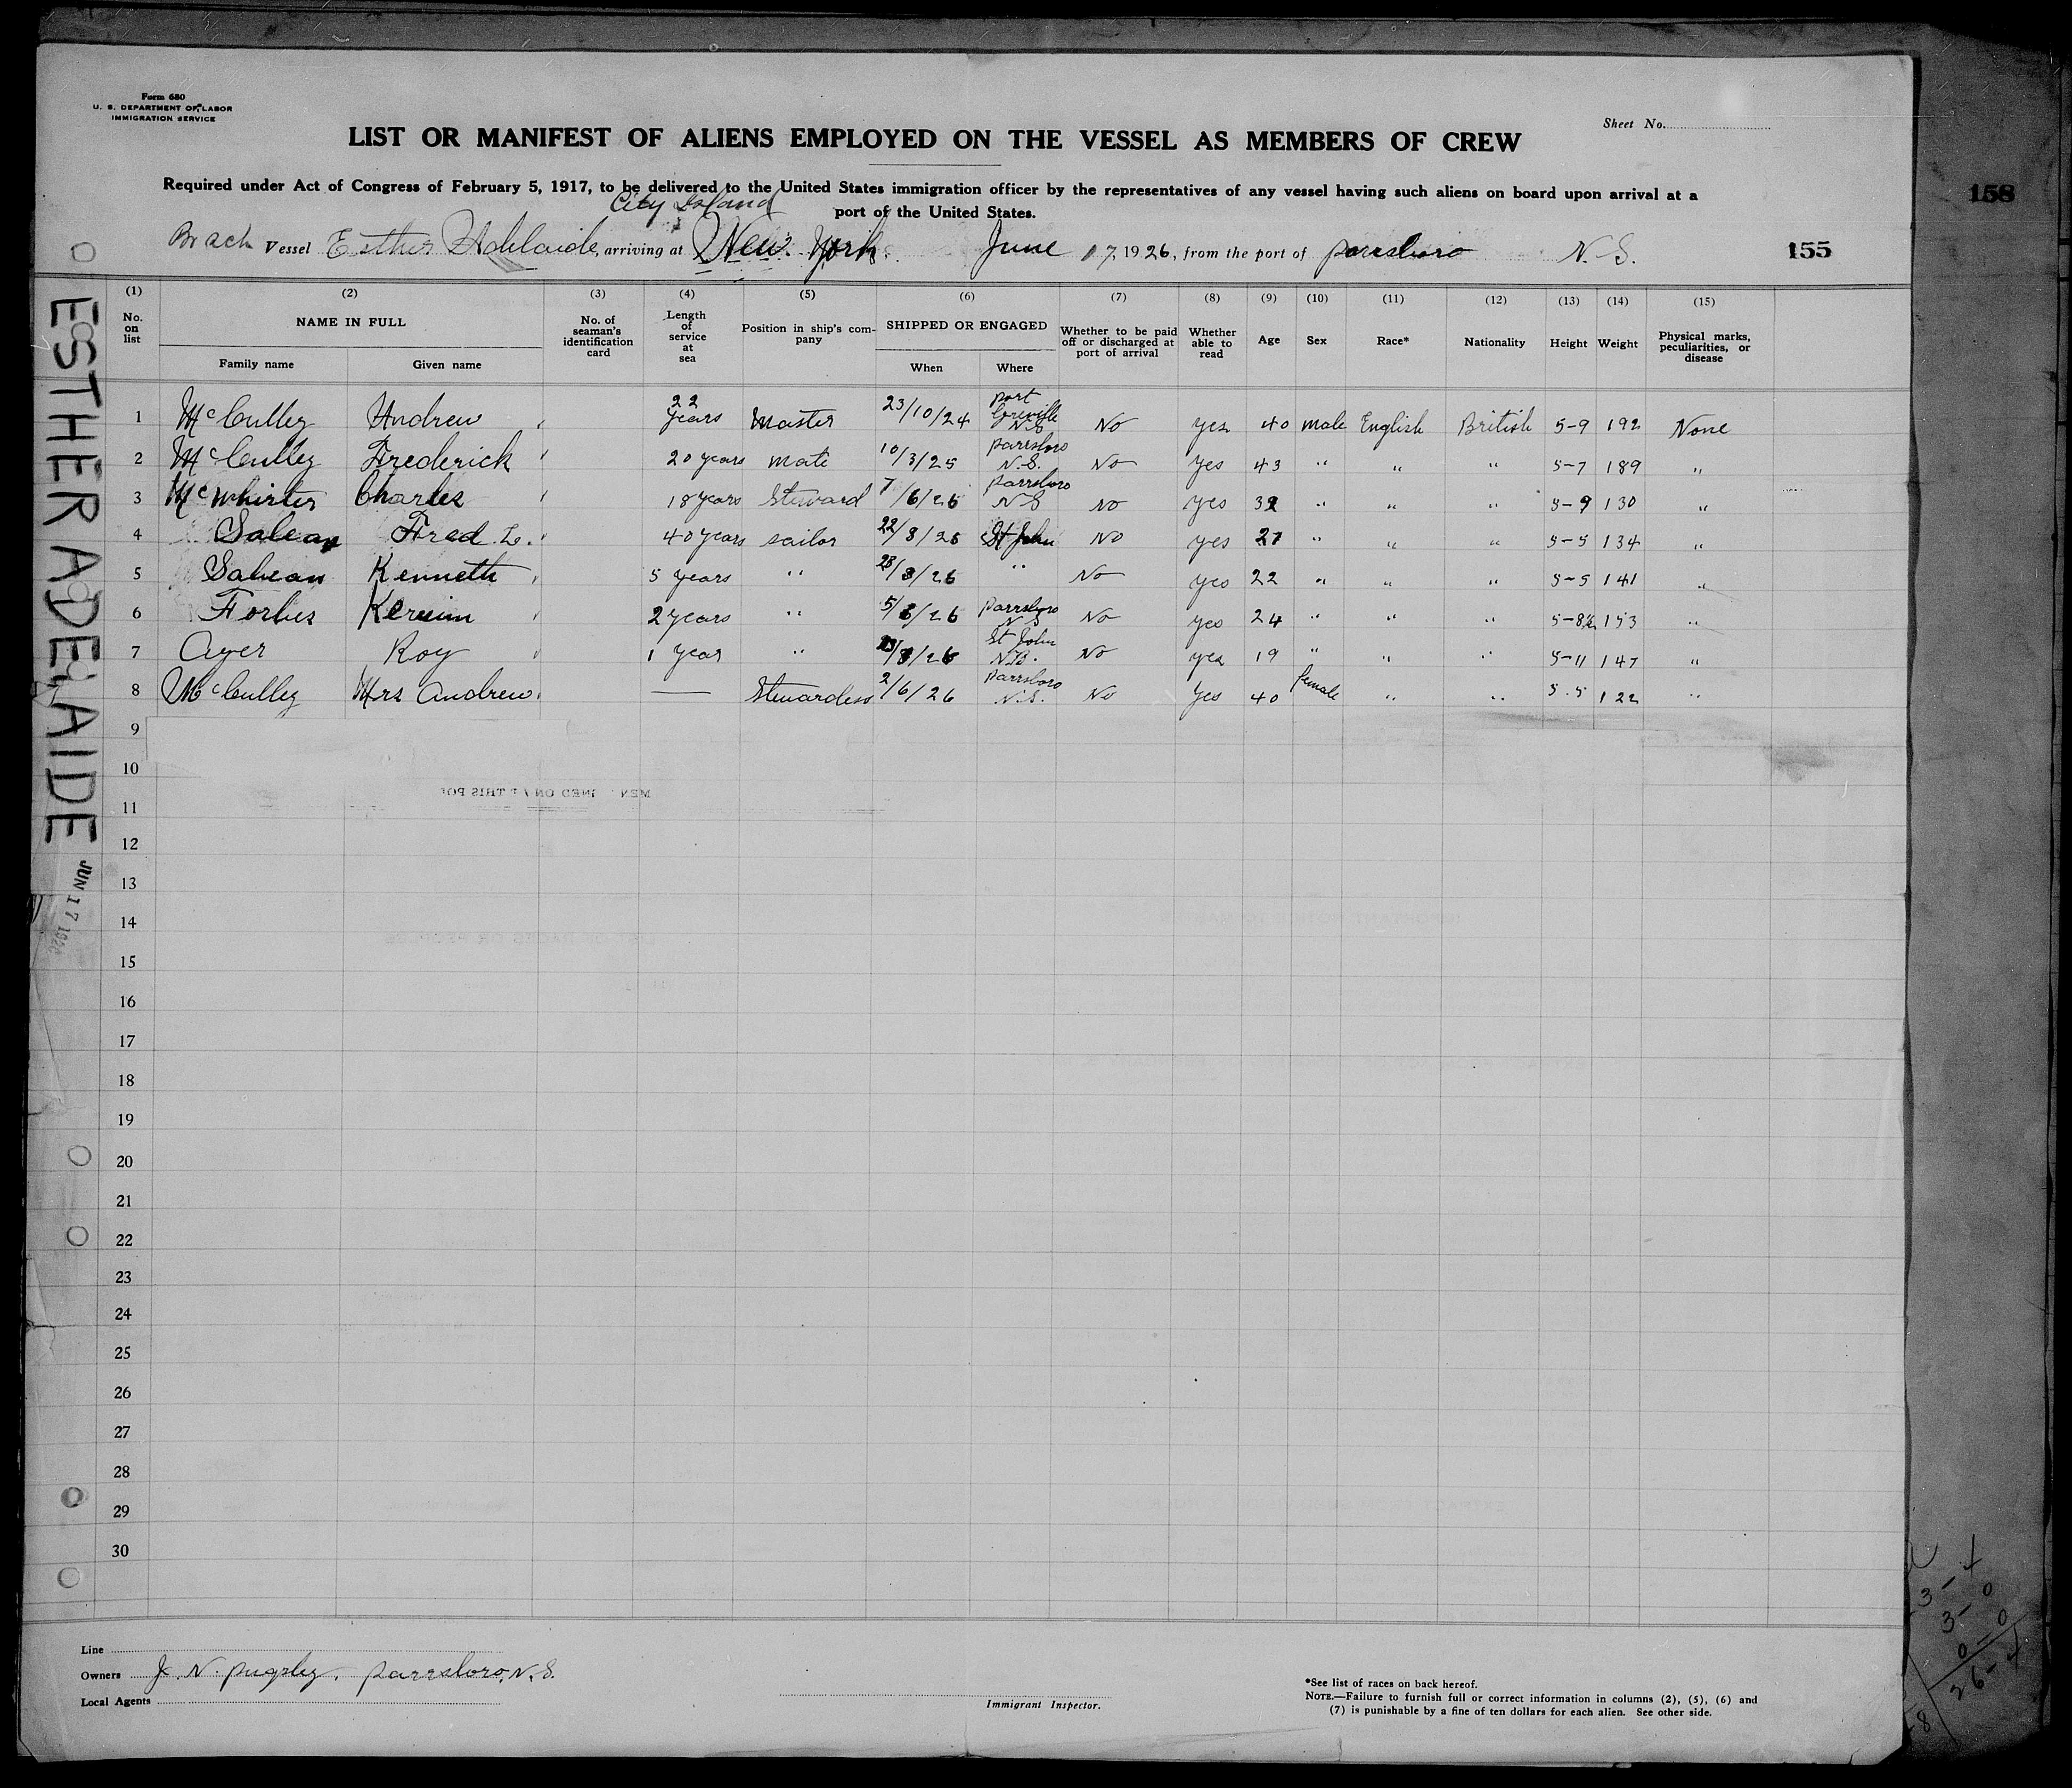 Form 680
U. S. DEPARTMENT OF LABOR
IMMIGRATION SERVICE
Sheet No.
LIST OR MANIFEST OF ALIENS EMPLOYED ON THE VESSEL AS MEMBERS OF CREW
Required under Act of Congress of February 5, 1917, to be delivered to the United States immigration officer by the representatives of any vessel having such aliens on board upon arrival at a
port of the United States.
158
City Island
Vessel Esther Adelaide, arriving at New York June 17, 1926, from the port of parrsboro N.S.
155
ESTHER ADELAIDE
JUN 17 1926
(1) (2) (3) (4) (5) (6) (7) (8) (9) (10) (11) (12) (13) (14) (15)
No. on list NAME IN FULL No. of seaman's identification card Length of service at sea Position in ship's company SHIPPED OR ENGAGED Whether to be paid off or discharged at port of arrival Whether able to read Age Sex Race* Nationality Height Weight Physical marks, peculiarities, or disease
Family name Given name When Where
1 McCulley Andrew 22 years Master 23/10/24 port Greville N.S No yes 40 male English British 5-9 192 None
2 McCulley Frederick 20 years mate 10/3/25 parrsboro N.S. No yes 43 " " " 5-7 189 "
3 McWhirter Charles 18 years Steward 7/6/26 parrsboro N S No yes " " " 5-9 130 "
4 Sabean Fred L. 40 years sailor St John No yes " " " 5-5 134 "
5 Sabean Kenneth 5 years " " No yes 22 " " " 5-5 141 "
6 Forbes 2 years " parrsboro N S No yes 24 " " " 5-8½ 153 "
7 Ayer Roy 1 year " St John N.B. No yes 19 " " " 5-11 147 "
8 McCulley Mrs Andrew — Stewardess 2/6/26 parrsboro N.S. No yes 40 female " " 5.5 122 "
9
10
11
12
13
14
15
16
17
18
19
20
21
22
23
24
25
26
27
28
29
30
Line
Owners J. N. Pugsley, parrsboro, N.S.
Local Agents
Immigrant Inspector.
*See list of races on back hereof.
NOTE.—Failure to furnish full or correct information in columns (2), (5), (6) and
(7) is punishable by a fine of ten dollars for each alien. See other side.